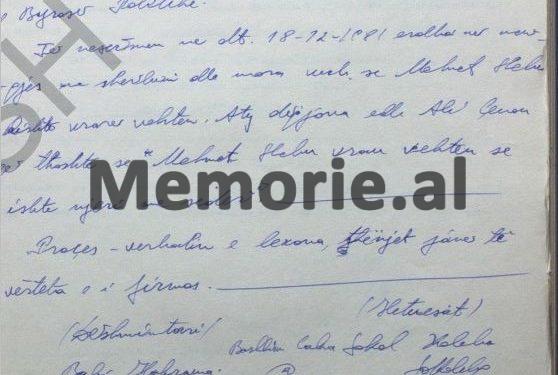 Byrosë Politike.
Të nesërmen me dt. 18-12-1981 erdha në mën-
gjes me shërbim dhe mora vesh se Mehmet Shehu
kishte vrarë vehten. Aty dëgjova edhe Ali Çenon
që thoshte se "Mehmet Shehu vrau vehten se
ishte njeri me
Memorie.al
Proçes-verbalin e lexova, thënjet janë të
vërteta e i firmos.
(Dëshmitari) (Hetuesat)
Sokol